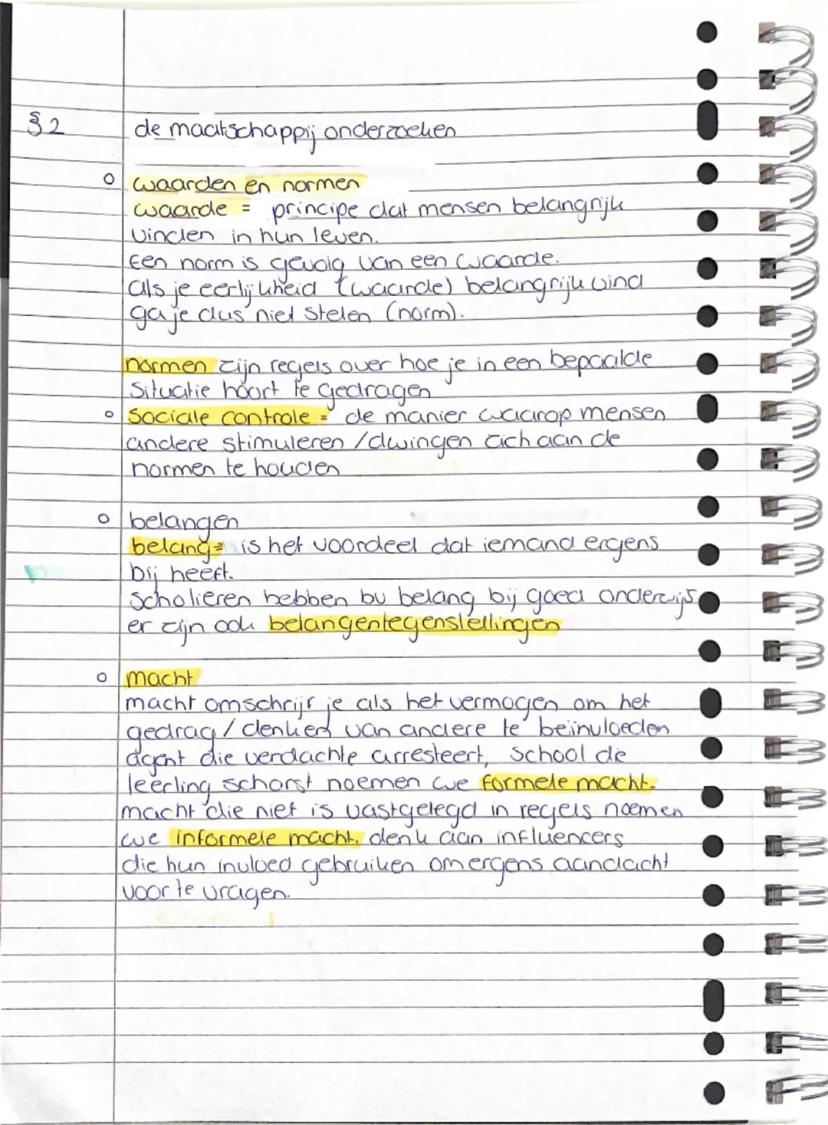 §2 de maatschappij onderzoeken
o waarden en normen
waarde = principe dat mensen belangrijk
vinden in hun leven.
Een norm is gevolg van een waarde.
als je eerlijkheid (waarde) belangrijk vind
ga je dus niet stelen (norm).
normen zijn regels over hoe je in een bepaalde
situatie hoort te gedragen
o Sociale controle = de manier waarop mensen
andere stimuleren /dwingen zich aan de
normen te houden
o belangen
belang = is het voordeel dat iemand ergens
bij heeft.
scholieren hebben bv belang bij goed onderwijs
er zijn ook belangentegenstellingen
o macht
macht omschrijf je als het vermogen om het
gedrag / denken van andere te beïnvloeden
agent die verdachte arresteert, school die
leerling schorst noemen we formele macht.
macht die niet is vastgelegd in regels noemen
we informele macht, denk aan influencers
die hun invloed gebruiken om ergens aandacht
voor te vragen.